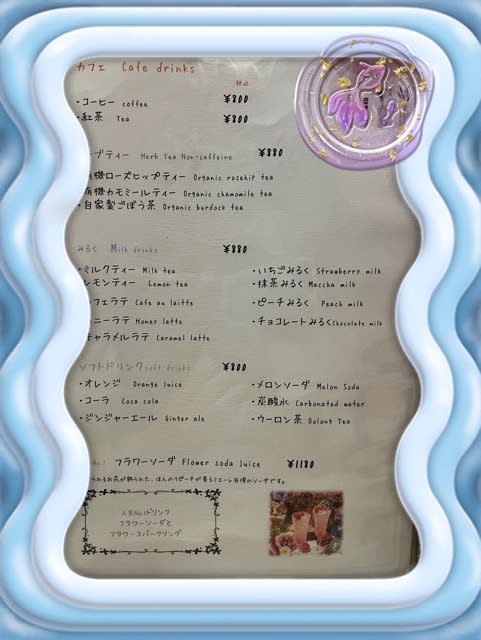 カフェ Cafe drinks
税込
・コーヒー coffee ¥800
・紅茶 Tea ¥800
ブティー Herb Tea Non-caffeine ¥880
有機ローズヒップティー Organic rosehip tea
有機カモミールティー Organic chamomile tea
・自家製ごぼう茶 Organic burdock tea
みるく Milk drinks ¥880
・ミルクティー Milk tea ・いちごみるく Strawberry milk
レモンティー Lemon tea ・抹茶みるく Maccha milk
フェラテ Cafe au laitte ・ピーチみるく Peach milk
ニーラテ Honey latte ・チョコレートみるく Chocolate milk
キャラメルラテ Caramel latte
ソフトドリンク soft drinks ¥800
・オレンジ Orange Juice ・メロンソーダ Melon Soda
・コーラ Coca cola ・炭酸水 Carbonated water
・ジンジャーエール Ginger ale ・ウーロン茶 Oolong Tea
No.1 フラワーソーダ Flower soda juice ¥1180
られるお花が飾られた、ほんのりピーチが香るジエーレ自慢のソーダです。
人気No.1ドリンク
フラワーソーダと
フラワースパークリング